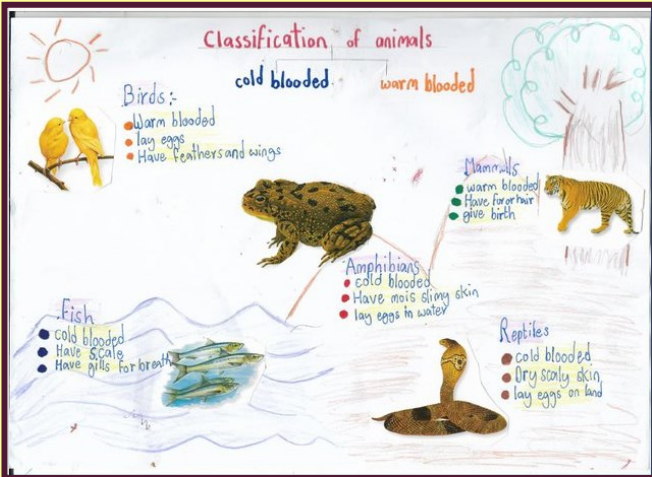 Classification of animals
cold blooded warm blooded
Birds:-
Warm blooded
lay eggs
Have feathers and wings
Mammals
warm blooded
Have fur or hair
give birth
Amphibians
cold blooded
Have mois slimy skin
lay eggs in water
Fish
cold blooded
Have scale
Have gills for breath
Reptiles
cold blooded
Dry scaly skin
lay eggs on land